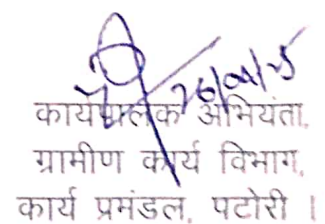 26/04/25
कार्यपालक अभियंता,
ग्रामीण कार्य विभाग,
कार्य प्रमंडल, पटोरी ।